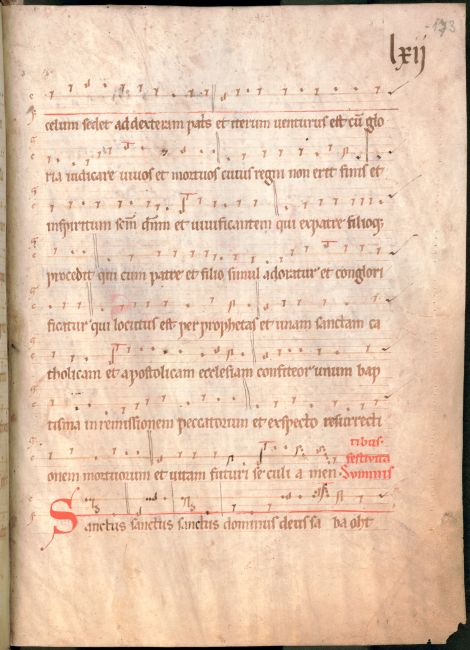 173
lxij
celum sedet ad dexteram patris et iterum venturus est cū glo
ria iudicare vivos et mortuos cuius regni non erit finis et
inspiritum scm̄ dnm̄ et vivificantem qui expatre filioqꝫ
procedit qui cum patre et filio simul adoratur et conglori
ficatur qui locutus est per prophetas et unam sanctam ca
tholicam et apostolicam ecclesiam confiteor unum bap
tisma in remissionem peccatorum et exspecto resurrecti
onem mortuorum et vitam futuri seculi a men Summis
festivita
tibus
Sanctus sanctus sanctus dominus deus sa ba oht